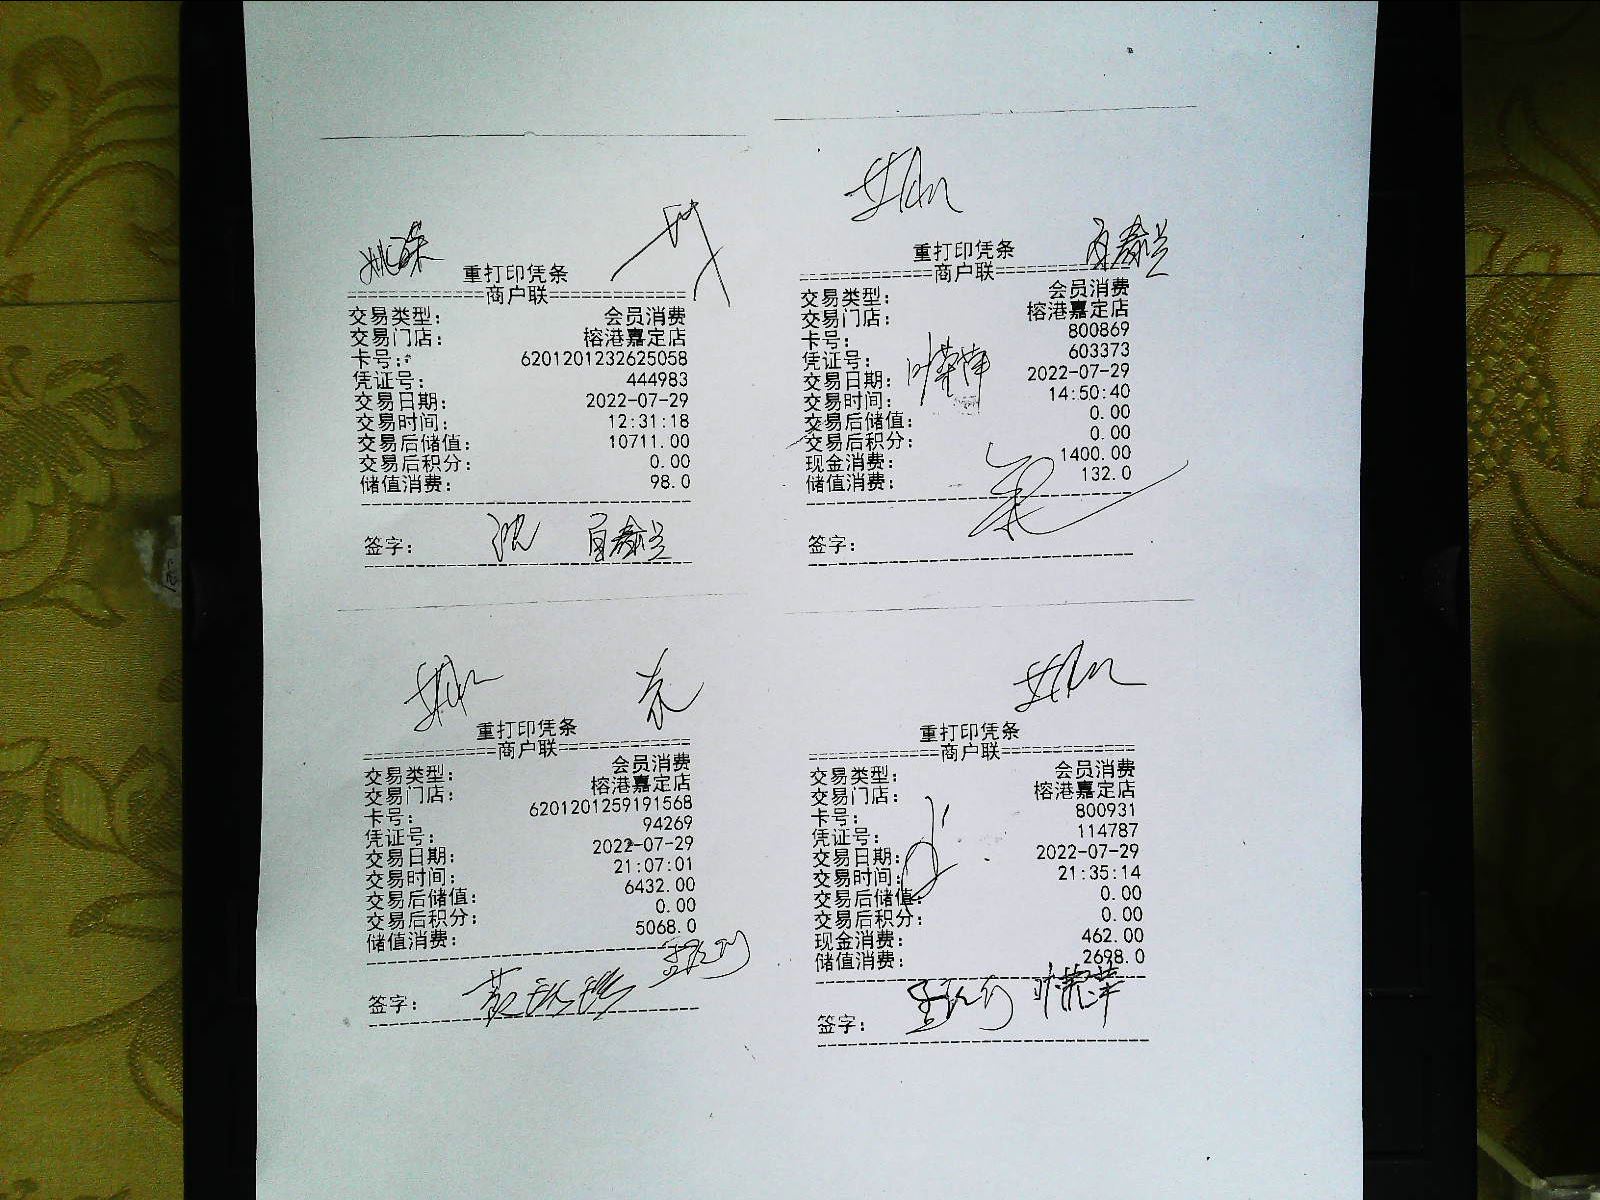 重打印凭条
==============商户联==============
交易类型: 会员消费
交易门店: 榕港嘉定店
卡号: 6201201232625058
凭证号: 444983
交易日期: 2022-07-29
交易时间: 12:31:18
交易后储值: 10711.00
交易后积分: 0.00
储值消费: 98.0
签字:
重打印凭条
==============商户联==============
交易类型: 会员消费
交易门店: 榕港嘉定店
卡号: 800869
凭证号: 603373
交易日期: 2022-07-29
交易时间: 14:50:40
交易后储值: 0.00
交易后积分: 0.00
现金消费: 1400.00
储值消费: 132.0
签字:
重打印凭条
==============商户联==============
交易类型: 会员消费
交易门店: 榕港嘉定店
卡号: 6201201259191568
凭证号: 94269
交易日期: 2022-07-29
交易时间: 21:07:01
交易后储值: 6432.00
交易后积分: 0.00
储值消费: 5068.0
签字:
重打印凭条
==============商户联==============
交易类型: 会员消费
交易门店: 榕港嘉定店
卡号: 800931
凭证号: 114787
交易日期: 2022-07-29
交易时间: 21:35:14
交易后储值: 0.00
交易后积分: 0.00
现金消费: 462.00
储值消费: 2698.0
签字: